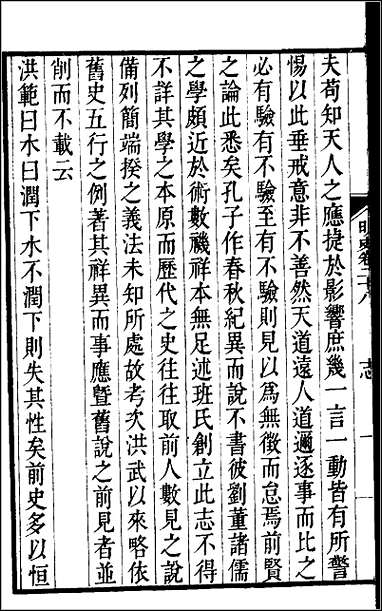 夫苟知天人之應捷於影響庶幾一言一動皆有所警
惕以此垂戒意非不善然天道遠人道邇逐事而比之
必有驗有不驗至有不驗則見以為無徵而怠焉前賢
之論此悉矣孔子作春秋紀異而說不書彼劉董諸儒
之學頗近於術數禨祥本無足述班氏創立此志不得
不詳其學之本原而歷代之史往往取前人數見之說
備列簡端揆之義法未知所處故考次洪武以來略依
舊史五行之例著其祥異而事應曁舊說之前見者並
削而不載云
洪範曰水曰潤下水不潤下則失其性矣前史多以恒
明史卷二十八
志
一